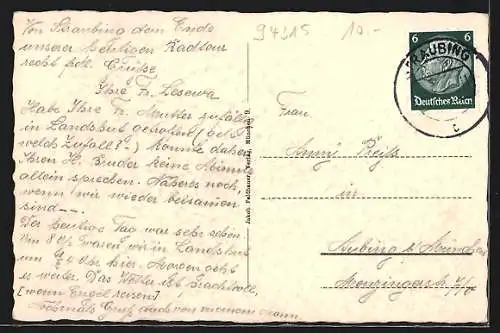 Von Straubing dem Ende
unserer heutigen Radtour
recht frdl. Grüße
Ihre Fr. Losewa
Habe Ihre Fr. Mutter zufällig
in Landshut getroffen (bei
welch Zufall?-) konnte daher
Ihren H. Bruder keine
allein sprechen. Näheres noch,
wenn wir wieder beisamen
sind --.
Der heutige Tag war sehr schön
Um 8 Uhr waren wir in Landshut
um Uhr hier. Morgen geht
es weiter. Das Wetter ist prachtvoll,
[wenn Engel reisen]
Nochmals Gruß auch von meinem Mann.
94315
10.-
Jakob Feldbauer, Verlag, München 9.
6 6
Deutsches Reich
STRAUBING
c
Frau
Anny Reiß
in
Aubing b/ München